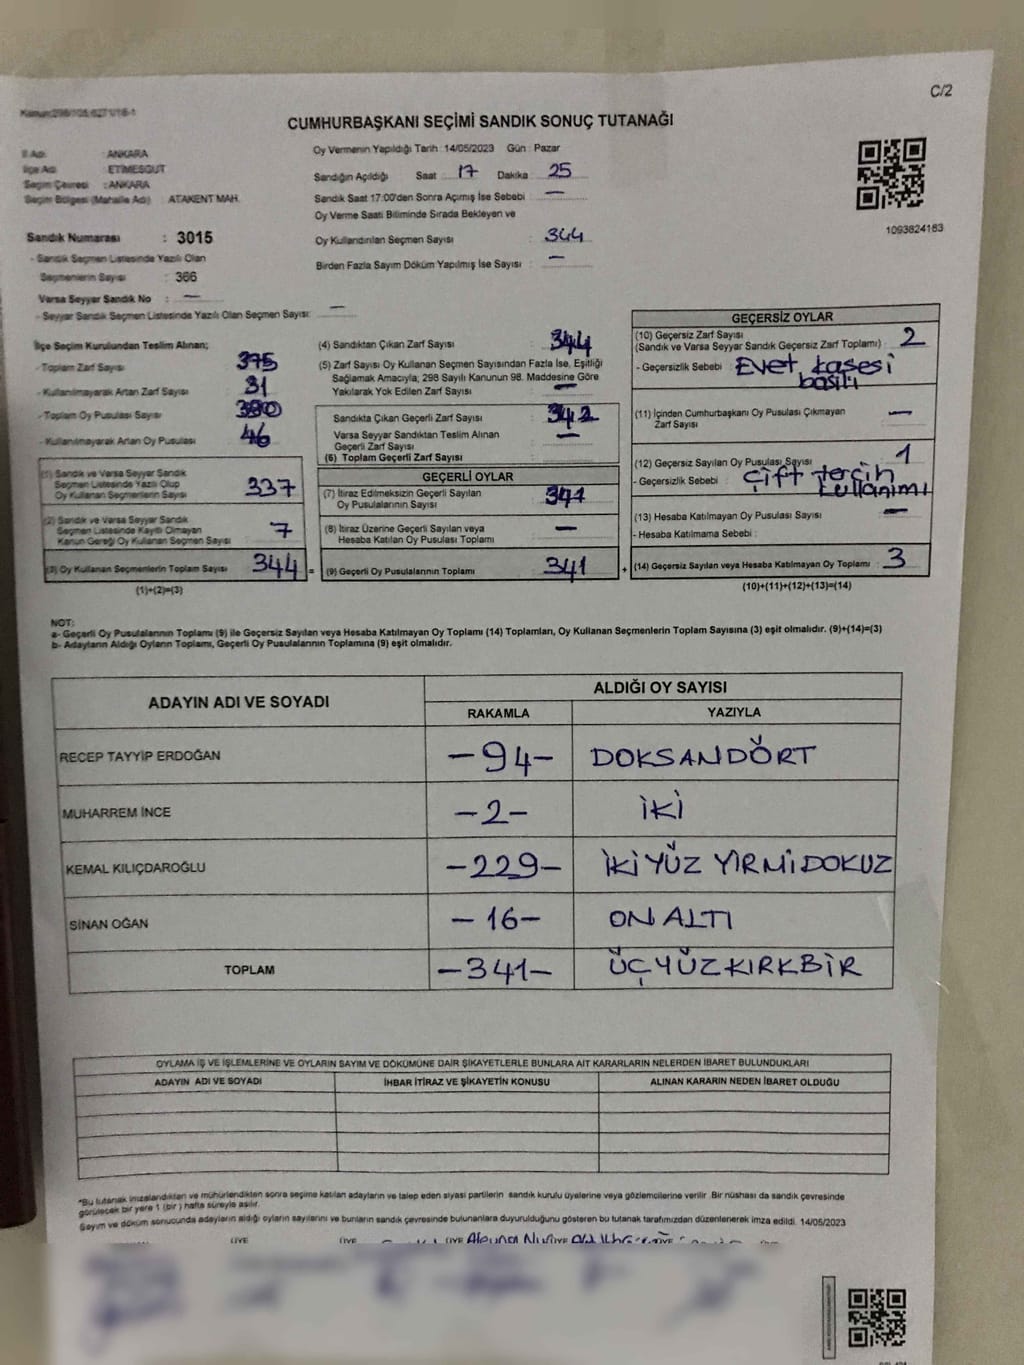 C/2
Kanun:298/105;6271/18-1
CUMHURBAŞKANI SEÇİMİ SANDIK SONUÇ TUTANAĞI
İl Adı : ANKARA
İlçe Adı : ETİMESGUT
Seçim Çevresi : ANKARA
Seçim Bölgesi (Mahalle Adı) ATAKENT MAH.
Sandık Numarası : 3015
- Sandık Seçmen Listesinde Yazılı Olan
Seçmenlerin Sayısı : 366
Varsa Seyyar Sandık No : —
- Seyyar Sandık Seçmen Listesinde Yazılı Olan Seçmen Sayısı: —
Oy Vermenin Yapıldığı Tarih : 14/05/2023 Gün : Pazar
Sandığın Açıldığı Saat 17 Dakika 25
Sandık Saat 17:00'den Sonra Açımış İse Sebebi —
Oy Verme Saati Bitiminde Sırada Bekleyen ve
Oy Kullandırılan Seçmen Sayısı : 344
Birden Fazla Sayım Döküm Yapılmış İse Sayısı : —
1093824183
İlçe Seçim Kurulundan Teslim Alınan;
- Toplam Zarf Sayısı : 375
- Kullanılmayarak Artan Zarf Sayısı : 31
- Toplam Oy Pusulası Sayısı :
- Kullanılmayarak Artan Oy Pusulası : 46
(1) Sandık ve Varsa Seyyar Sandık
Seçmen Listesinde Yazılı Olup
Oy Kullanan Seçmenlerin Sayısı : 337
(2) Sandık ve Varsa Seyyar Sandık
Seçmen Listesinde Kayıtlı Olmayan
Kanun Gereği Oy Kullanan Seçmen Sayısı : 7
(3) Oy Kullanan Seçmenlerin Toplam Sayısı : 344 =
(1)+(2)=(3)
(4) Sandıktan Çıkan Zarf Sayısı : 344
(5) Zarf Sayısı Oy Kullanan Seçmen Sayısından Fazla İse, Eşitliği
Sağlamak Amacıyla; 298 Sayılı Kanunun 98. Maddesine Göre
Yakılarak Yok Edilen Zarf Sayısı : —
Sandıkta Çıkan Geçerli Zarf Sayısı : 342
Varsa Seyyar Sandıktan Teslim Alınan
Geçerli Zarf Sayısı : —
(6) Toplam Geçerli Zarf Sayısı :
GEÇERLİ OYLAR
(7) İtiraz Edilmeksizin Geçerli Sayılan
Oy Pusulalarının Sayısı : 341
(8) İtiraz Üzerine Geçerli Sayılan veya
Hesaba Katılan Oy Pusulası Toplamı : —
(9) Geçerli Oy Pusulalarının Toplamı : 341 +
GEÇERSİZ OYLAR
(10) Geçersiz Zarf Sayısı
(Sandık ve Varsa Seyyar Sandık Geçersiz Zarf Toplamı) : 2
- Geçersizlik Sebebi : Evet, kaşesi
basılı
(11) İçinden Cumhurbaşkanı Oy Pusulası Çıkmayan
Zarf Sayısı : —
(12) Geçersiz Sayılan Oy Pusulası Sayısı : 1
- Geçersizlik Sebebi : çift tercih
kullanımı
(13) Hesaba Katılmayan Oy Pusulası Sayısı : —
- Hesaba Katılmama Sebebi :
(14) Geçersiz Sayılan veya Hesaba Katılmayan Oy Toplamı : 3
(10)+(11)+(12)+(13)=(14)
NOT:
a- Geçerli Oy Pusulalarının Toplamı (9) ile Geçersiz Sayılan veya Hesaba Katılmayan Oy Toplamı (14) Toplamları, Oy Kullanan Seçmenlerin Toplam Sayısına (3) eşit olmalıdır. (9)+(14)=(3)
b- Adayların Aldığı Oyların Toplamı, Geçerli Oy Pusulalarının Toplamına (9) eşit olmalıdır.
ADAYIN ADI VE SOYADI ALDIĞI OY SAYISI
RAKAMLA YAZIYLA
RECEP TAYYİP ERDOĞAN -94- DOKSANDÖRT
MUHARREM İNCE -2- İKİ
KEMAL KILIÇDAROĞLU -229- İKİ YÜZ YİRMİDOKUZ
SİNAN OĞAN -16- ON ALTI
TOPLAM -341- ÜÇYÜZKIRKBİR
OYLAMA İŞ VE İŞLEMLERİNE VE OYLARIN SAYIM VE DÖKÜMÜNE DAİR ŞİKAYETLERLE BUNLARA AİT KARARLARIN NELERDEN İBARET BULUNDUKLARI
ADAYIN ADI VE SOYADI İHBAR İTİRAZ VE ŞİKAYETİN KONUSU ALINAN KARARIN NEDEN İBARET OLDUĞU
*Bu tutanak imzalandıktan ve mühürlendikten sonra seçime katılan adayların ve talep eden siyasi partilerin sandık kurulu üyelerine veya gözlemcilerine verilir. Bir nüshası da sandık çevresinde
görülecek bir yere 1 (bir) hafta süreyle asılır.
Sayım ve döküm sonucunda adayların aldığı oyların sayılarını ve bunların sandık çevresinde bulunanlara duyurulduğunu gösteren bu tutanak tarafımızdan düzenlenerek imza edildi. 14/05/2023
ÜYE ÜYE ÜYE